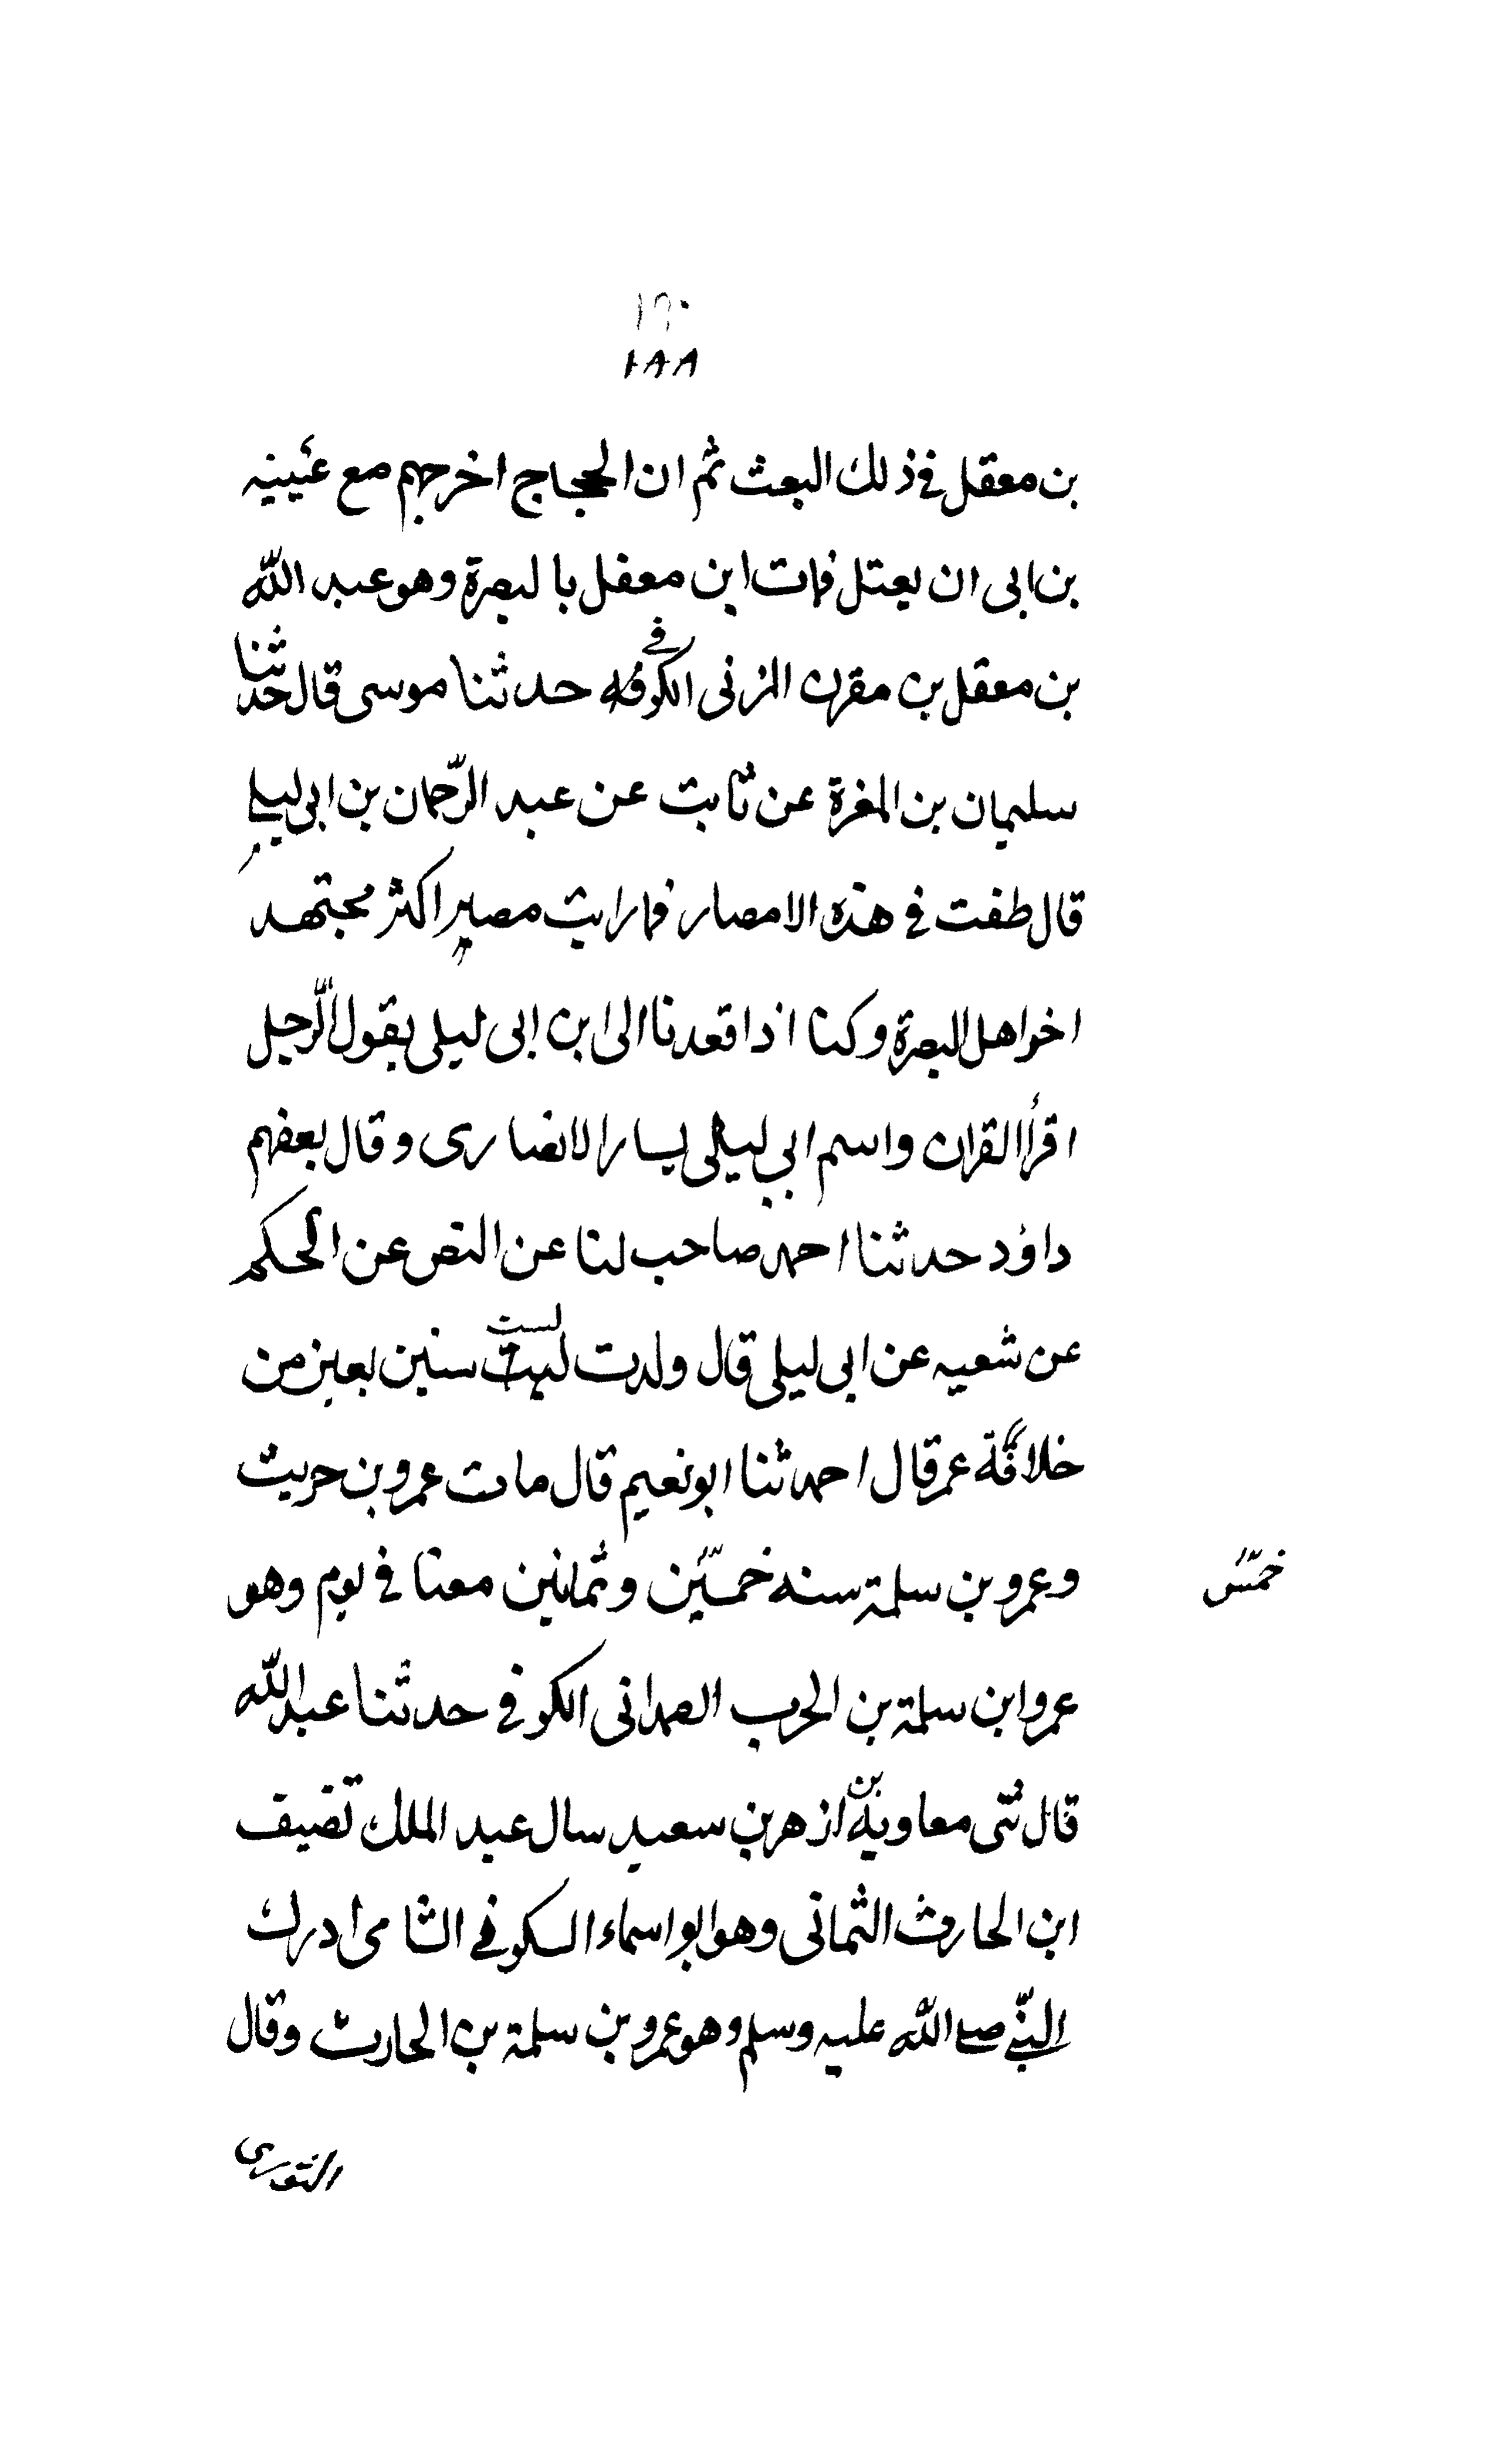 ١٩٠
١٨٨
بن معقل في ذلك البعث ثم ان الحجاج اخرجهم مع عيينه
بن ابى ان يعتل فمات ابن معفل بالبصرة وهو عبد الله
بن معقل بن مقرن المزنى الكوفه في حدثنا موسى قال حدثنا
سليمان بن المغرة عن ثابت عن عبد الرّحمان بن ابى ليلے
قال طفت في هذه الامصار فما رايت مصير اكثر مجتهد
اخر اهل البصرة وكنا اذا قعدنا الى ابن ابى ليلى يقول الرّجل
اقرأ القران واسم ابي ليلى يسار الانصارى وقال بعفهم
داؤد حدثنا احمد صاحب لنا عن النصر عن الحكم
عن شعيه عن ابى ليلى قال ولدت لست سنين بعين من
خلافة عمر قال احمد ثنا ابو نعيم قال مات عمرو بن حريث
وعمرو بن سلمة سنه خمسين وثمانين معنا في يوم وهو
خمس
عمرو ابن سلمة بن الحرب الهمدانى الكوفي حدثنا عبد الله
قال ثنى معاوية بن ازهر بن سعيد سال عبد الملك تضيف
ابن الحارث الثمانى وهو ابو اسماء السكوني الشامى ادرك
النّبے صلے الله عليه وسلم وهو عمرو بن سلمة بن الحارث وقال